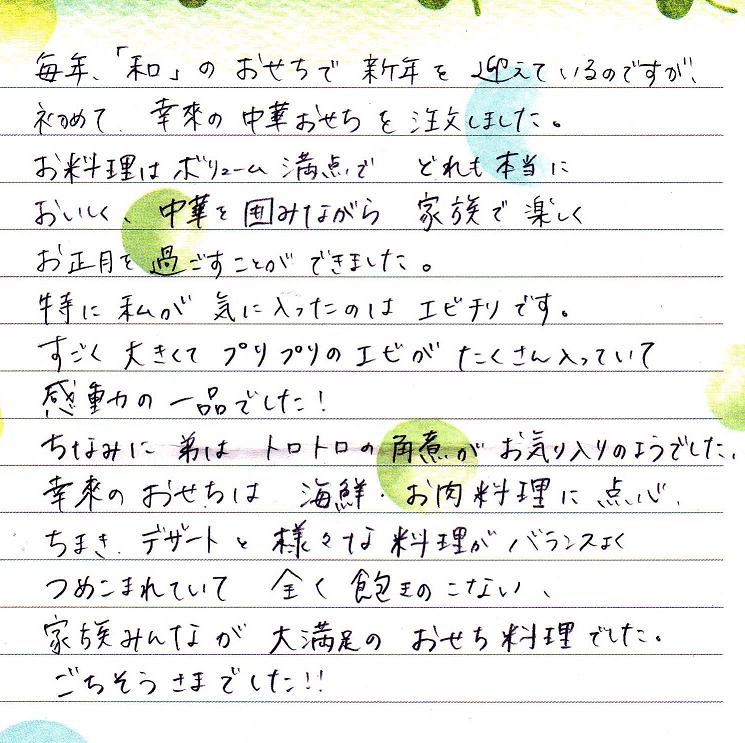 毎年、「和」のおせちで 新年を 迎えているのですが、
初めて 幸來の中華おせちを注文しました。
お料理はボリューム満点で どれも本当に
おいしく、中華を囲みながら 家族で楽しく
お正月を過ごすことができました。
特に私が 気に入ったのは エビチリです。
すごく大きくて プリプリのエビが たくさん入っていて
感動の一品でした!
ちなみに 弟は トロトロの角煮が お気り入りのようでした。
幸來の おせちは 海鮮・お肉料理に点心、
ちまき、デザートと様々な料理がバランスよく
つめこまれていて 全く飽きのこない、
家族みんなが 大満足の おせち料理でした。
ごちそうさまでした!!